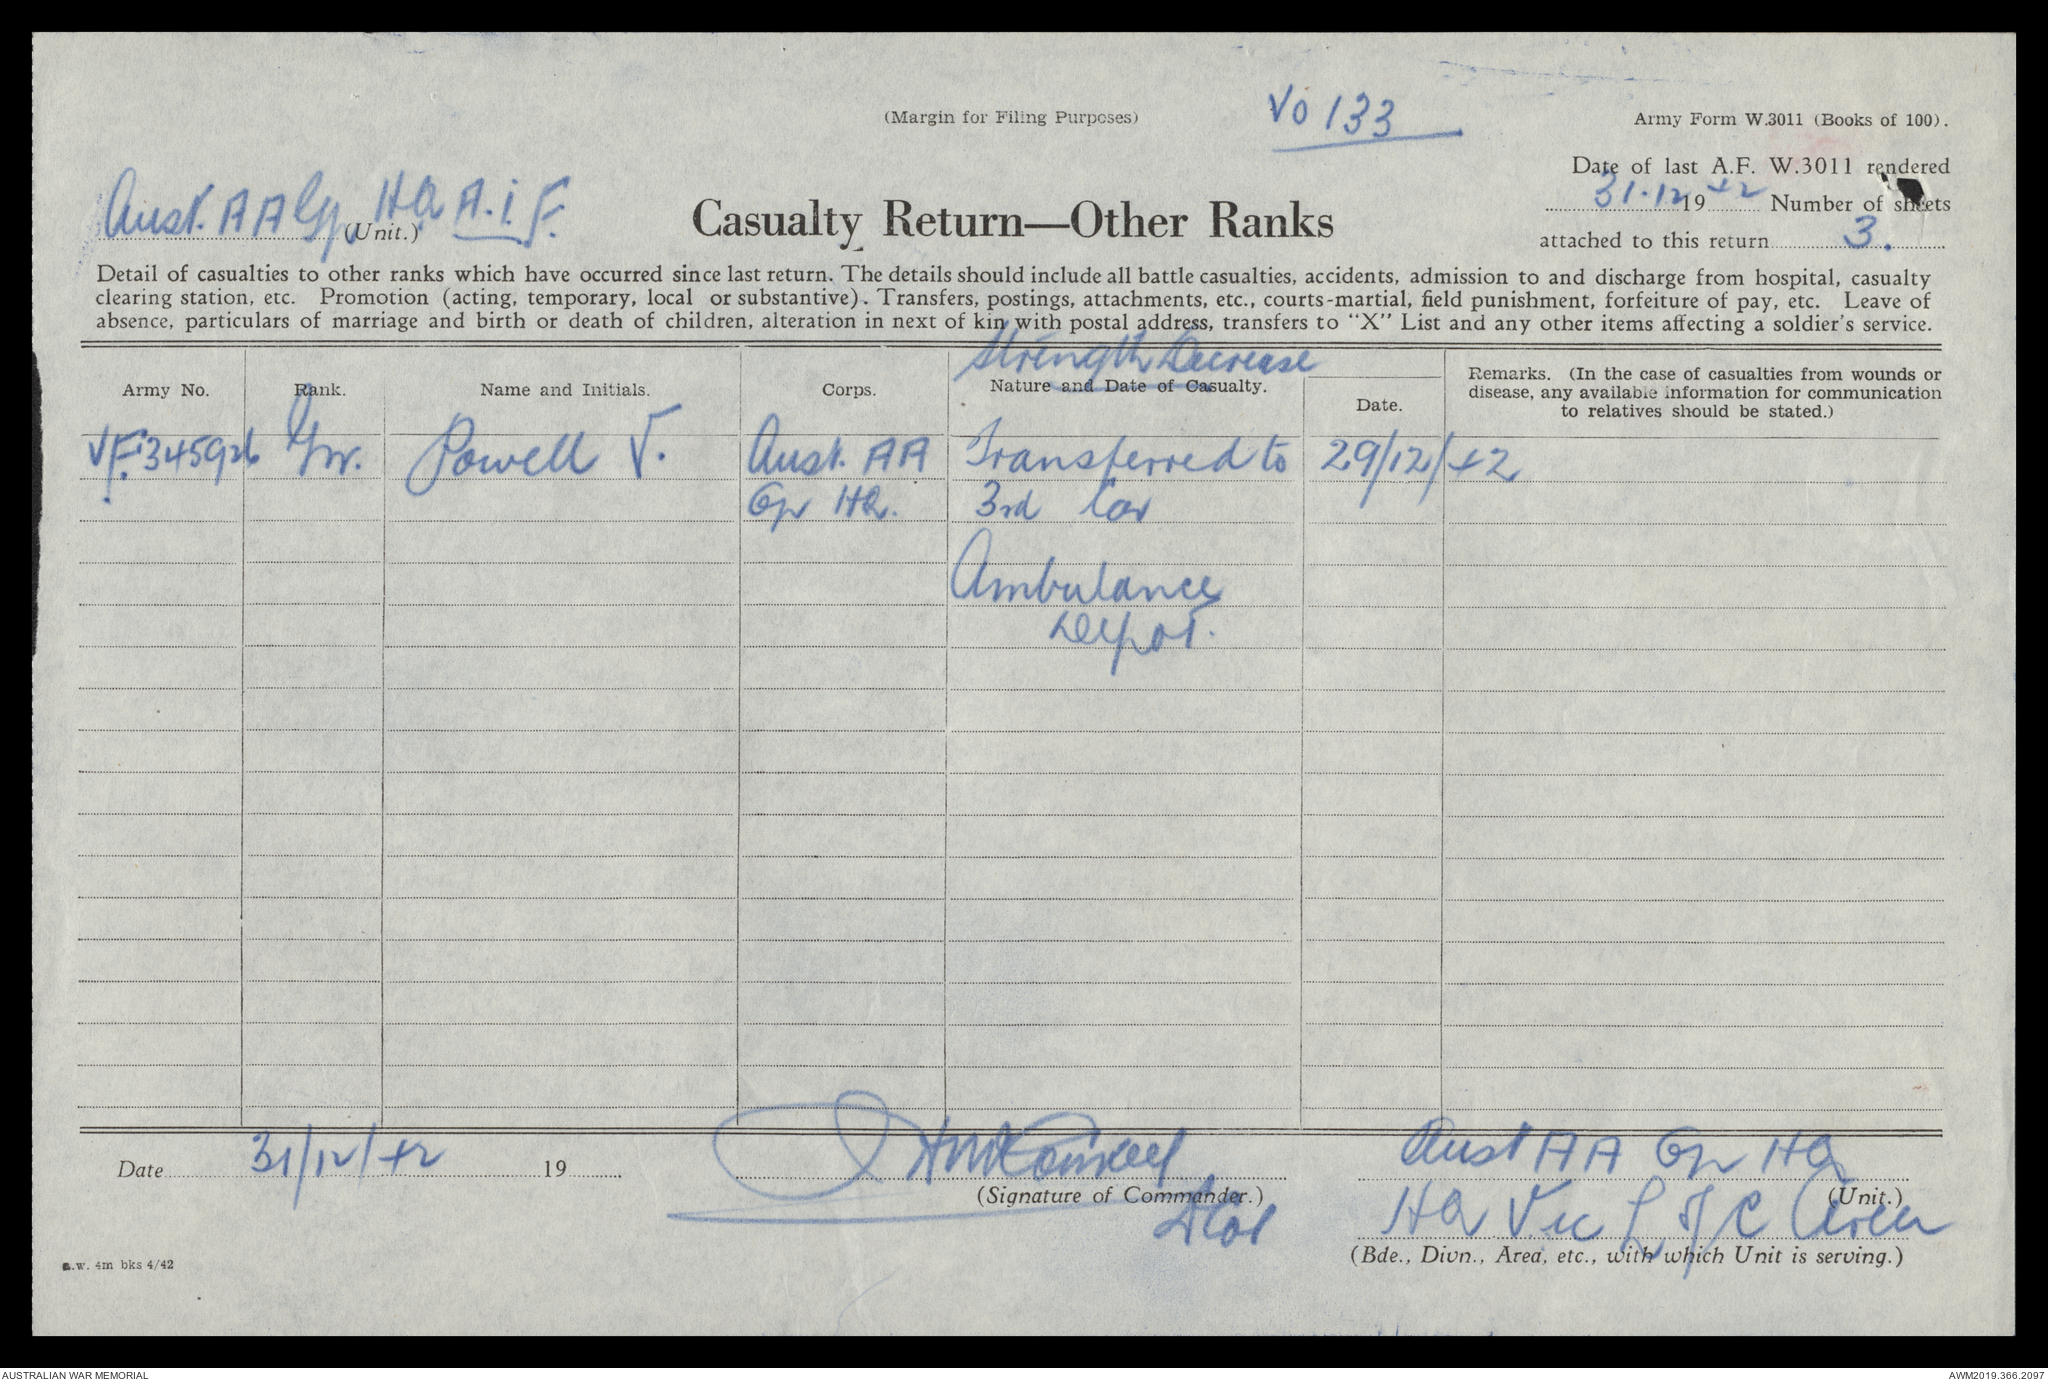 (Margin for Filing Purposes)
VO 133
Army Form W.3011 (Books of 100).
Date of last A.F. W.3011 rendered
31.12 19 42 Number of sheets
attached to this return 3.
Aust. AA Gp HQ A.I.F.
(Unit.)
Casualty Return—Other Ranks
Detail of casualties to other ranks which have occurred since last return. The details should include all battle casualties, accidents, admission to and discharge from hospital, casualty
clearing station, etc. Promotion (acting, temporary, local or substantive). Transfers, postings, attachments, etc., courts-martial, field punishment, forfeiture of pay, etc. Leave of
absence, particulars of marriage and birth or death of children, alteration in next of kin with postal address, transfers to "X" List and any other items affecting a soldier's service.
Strength Decrease
Army No. Rank. Name and Initials. Corps. Nature and Date of Casualty. Date. Remarks. (In the case of casualties from wounds or
disease, any available information for communication
to relatives should be stated.)
VF345926 Gnr. Powell V. Aust. AA Transferred to 29/12/42
Gp HQ. 3rd Cav
Ambulance
Depot.
Date 31/12/42 19
(Signature of Commander.)
Aust AA Gp HQ
(Unit.)
HQ Vic L of C Area
(Bde., Divn., Area, etc., with which Unit is serving.)
a.w. 4m bks 4/42
AUSTRALIAN WAR MEMORIAL
AWM2019.366.2097